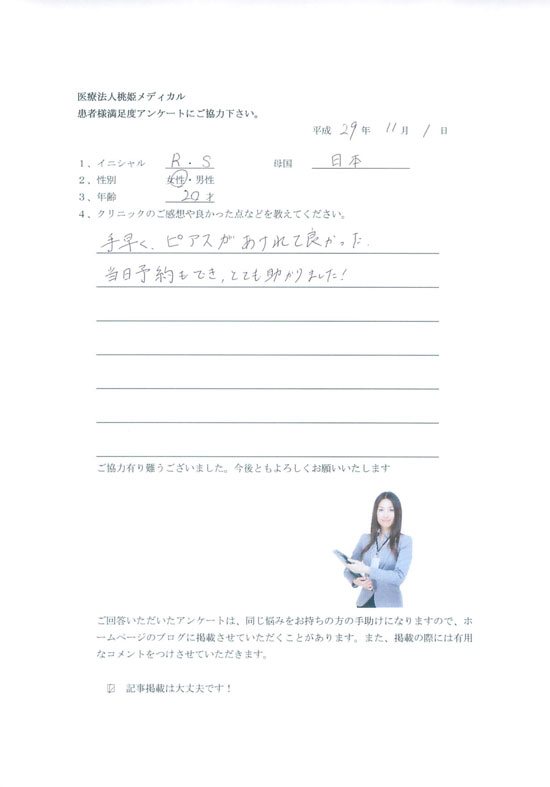 医療法人桃姫メディカル
患者様満足度アンケートにご協力下さい。
平成 29 年 11 月 1 日
1、イニシャル R・S 母国 日本
2、性別 女性・男性
3、年齢 20 才
4、クリニックのご感想や良かった点などを教えてください。
手早く、ピアスがあけれて良かった。
当日予約もでき、とても助かりました!
ご協力有り難うございました。今後ともよろしくお願いいたします
ご回答いただいたアンケートは、同じ悩みをお持ちの方の手助けになりますので、ホ
ームページのブログに掲載させていただくことがあります。また、掲載の際には有用
なコメントをつけさせていただきます。
☑ 記事掲載は大丈夫です!